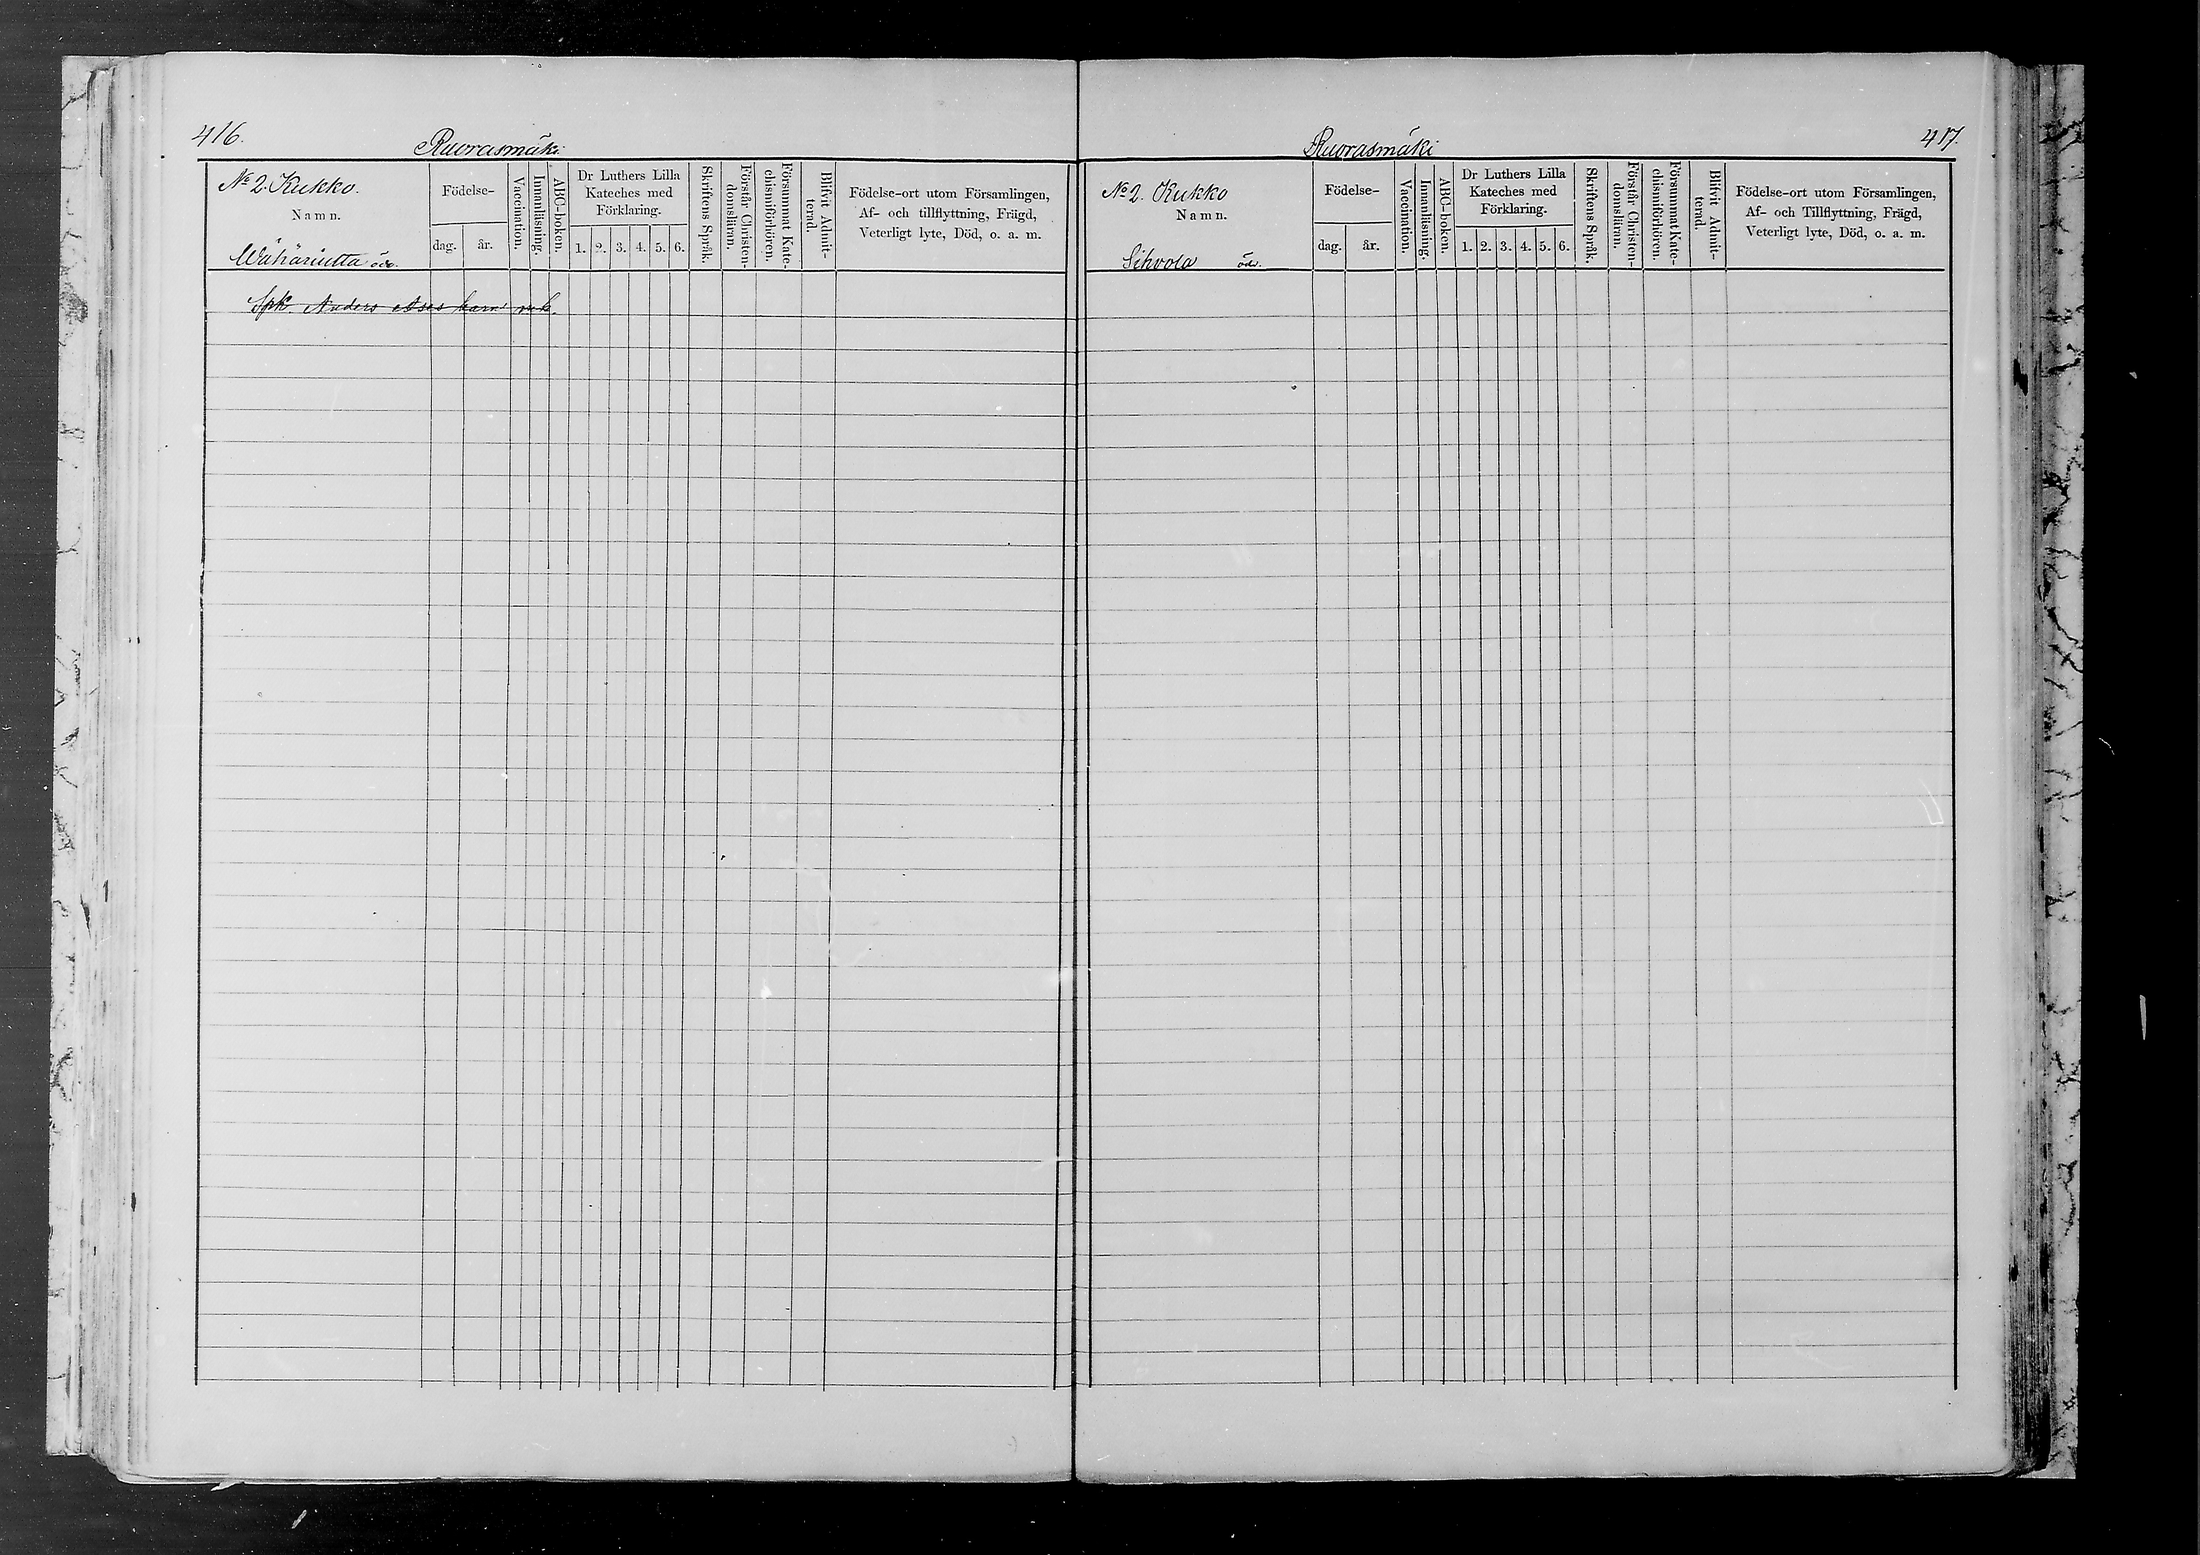 416.
Ruorasmäki
No 2. Kukko.
Namn.
Födelse-
dag.
år.
Vaccination.
Innanläsning.
ABC-boken.
Dr Luthers Lilla
Kateches med
Förklaring.
1. 2. 3. 4. 5. 6.
Skriftens Språk.
Förstår Christen-
domsläran.
Försummat Kate-
chismiförhören.
Blifvit Admit-
terad.
Födelse-ort utom Församlingen,
Af- och tillflyttning, Frägd,
Veterligt lyte, Död, o. a. m.
öde.
Spk Anders
Ruorasmäki
417.
No 2. Kukko
Namn.
Sihvola öde.
Födelse-
dag.
år.
Vaccination.
Innanläsning.
ABC-boken.
Dr Luthers Lilla
Kateches med
Förklaring.
1. 2. 3. 4. 5. 6.
Skriftens Språk.
Förstår Christen-
domsläran.
Försummat Kate-
chismiförhören.
Blifvit Admit-
terad.
Födelse-ort utom Församlingen,
Af- och Tillflyttning, Frägd,
Veterligt lyte, Död, o. a. m.